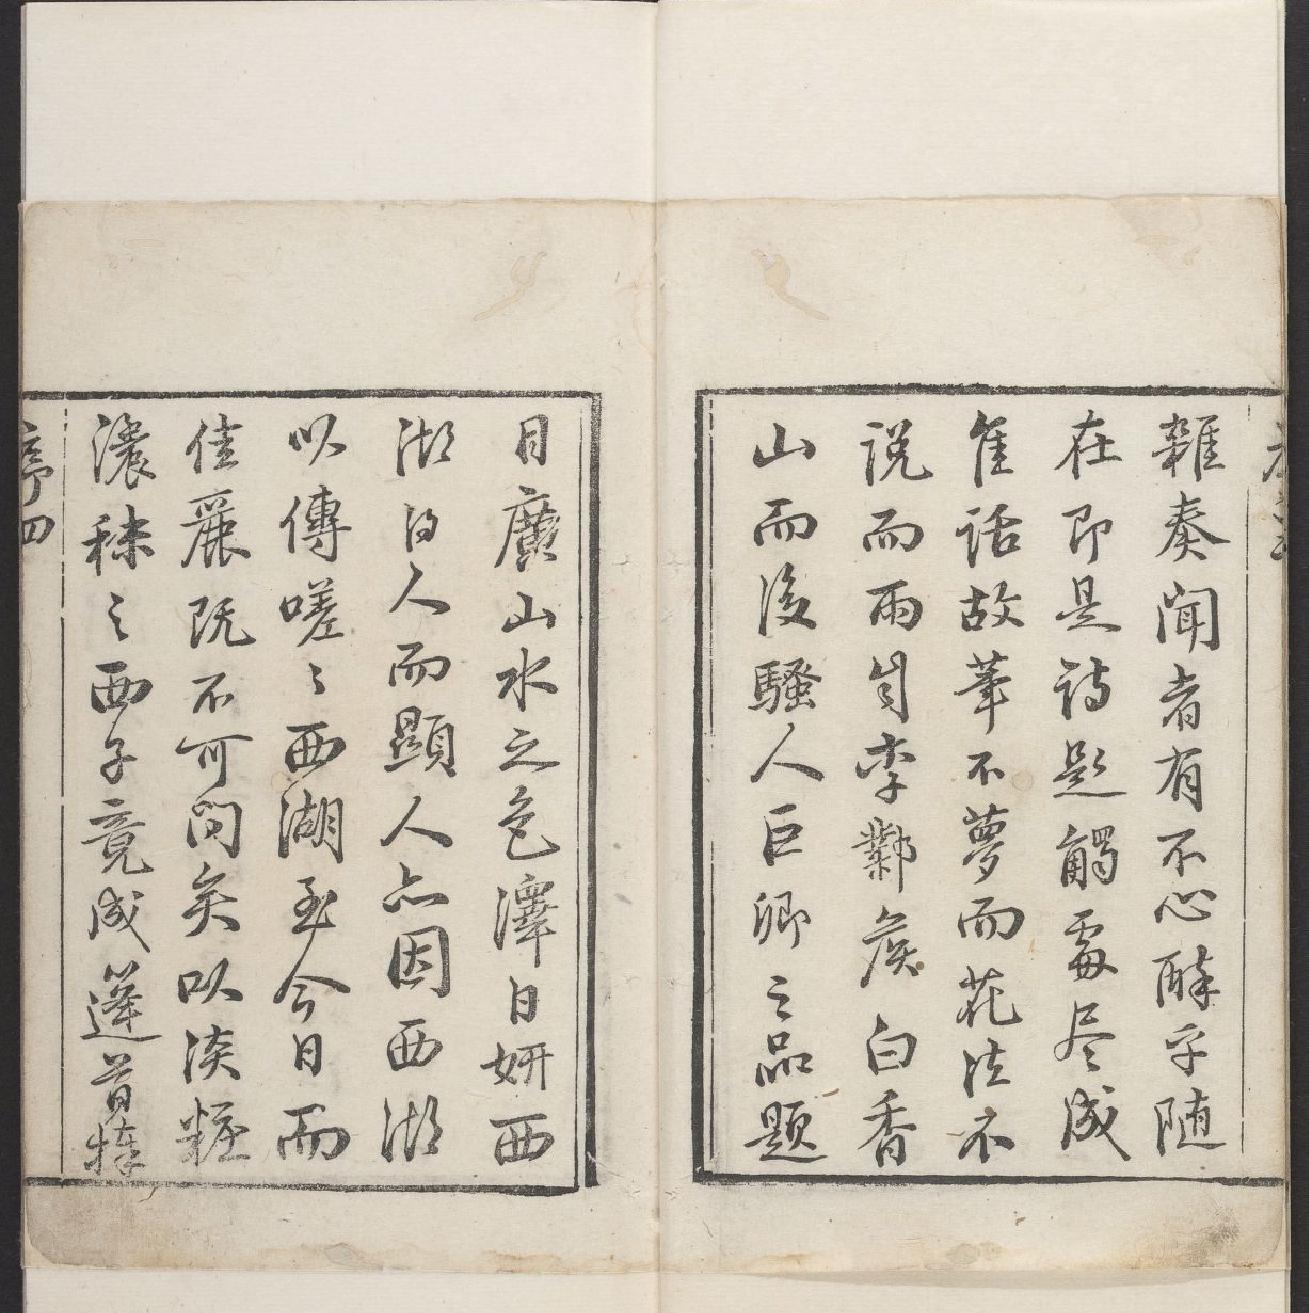 雜奏聞者有不心醉乎随
在即是詩題觸處尽成
佳話故筆不夢而花法不
説而雨自李鄴侯白香
山而後騷人巨卿之品題
日廣山水之色澤日妍西
湖得人而顯人亦因西湖
以傳嗟〻西湖至今日而
佳麗既不可問矣以淡粧
濃抹之西子竟成蓬首
序四